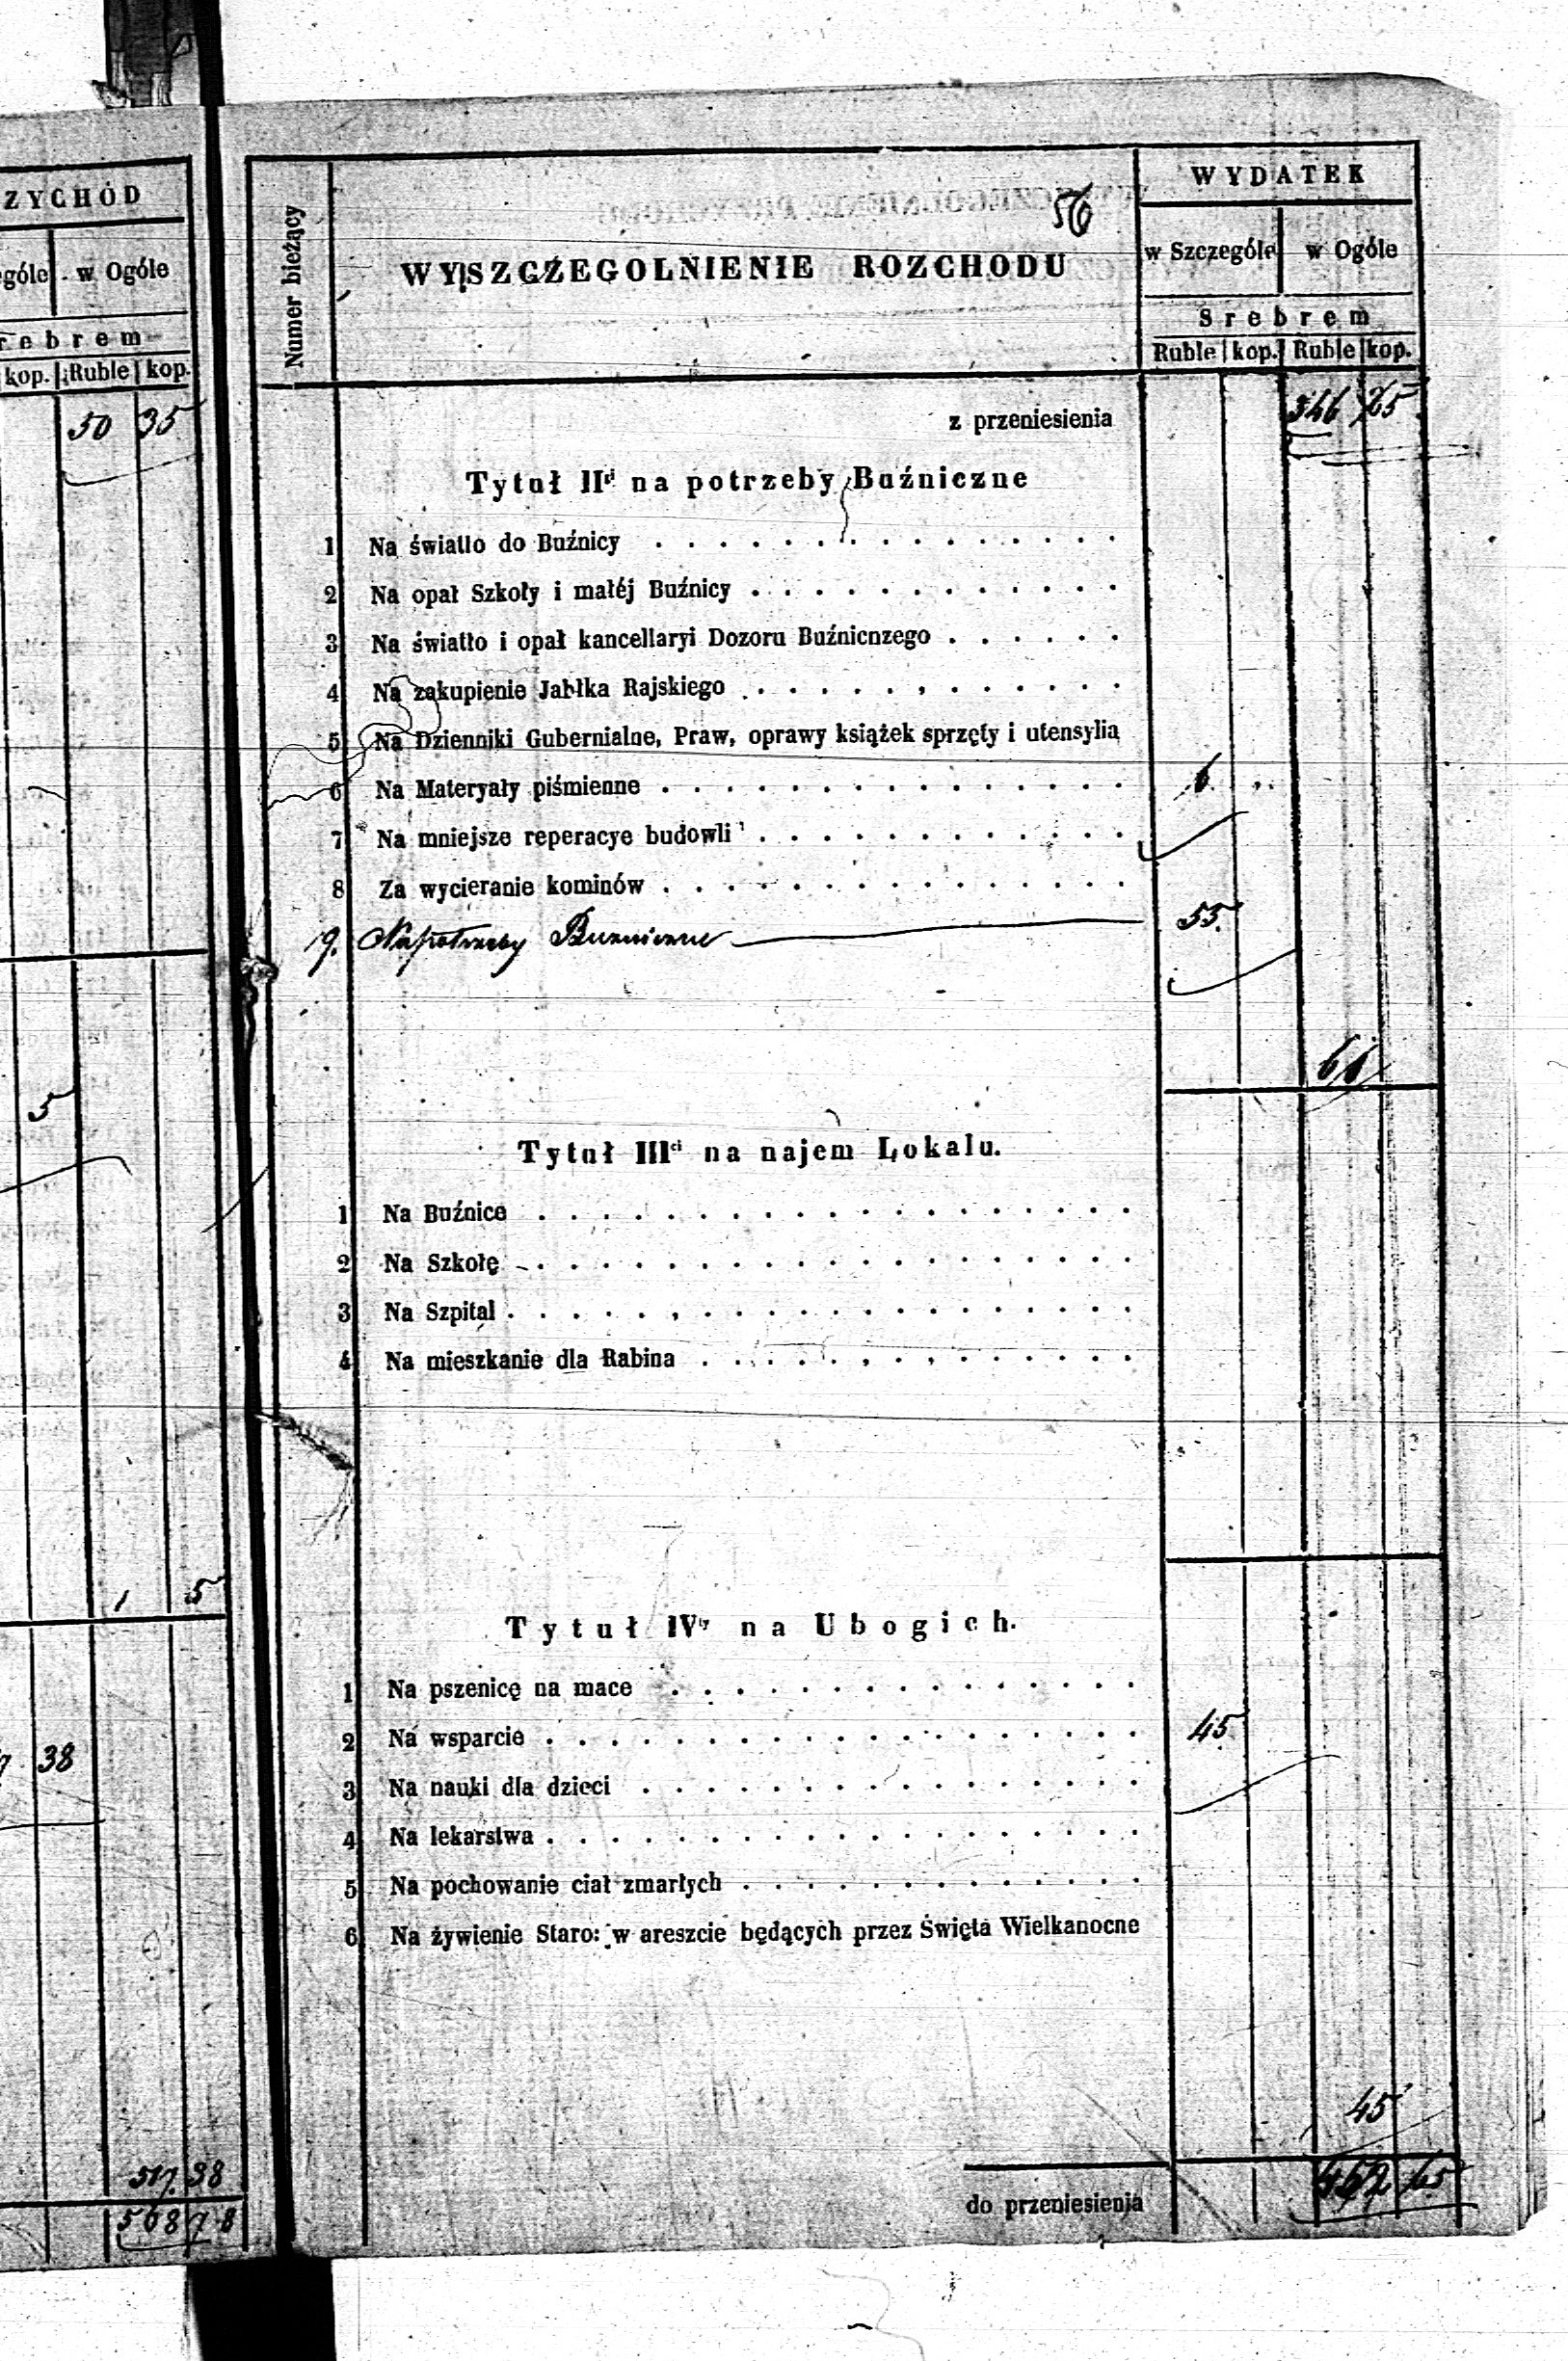 ZYCHÓD
góle w Ogóle
rebrem
kop. Ruble kop.
50 35
5
1 5
38
517. 38
568 78
56
Numer bieżący
WYSZCZEGOLNIENIE ROZCHODU
WYDATEK
w Szczególe w Ogóle
Srebrem
Ruble kop. Ruble kop.
z przeniesienia 346 65
Tytuł IIgi na potrzeby Buźniczne
1 Na światło do Buźnicy
2 Na opał Szkoły i małéj Buźnicy
3 Na światło i opał kancellaryi Dozoru Buźnicnzego
4 Na zakupienie Jabłka Rajskiego
5 Na Dzienniki Gubernialne, Praw, oprawy książek sprzęty i utensylia
6 Na Materyały piśmienne 6 "
7 Na mniejsze reperacye budowli
8 Za wycieranie kominów
9. Na potrzeby Buzniczne 55.
61
Tytuł IIIci na najem Lokalu.
1 Na Buźnice
2 Na Szkołę
3 Na Szpital
4 Na mieszkanie dla Rabina
Tytuł IVty na Ubogich.
1 Na pszenicę na mace
2 Na wsparcie 45
3 Na nauki dla dzieci
4 Na lekarstwa
5 Na pochowanie ciał zmarłych
6 Na żywienie Staro: w areszcie będących przez Święta Wielkanocne
45
do przeniesienia 452 65